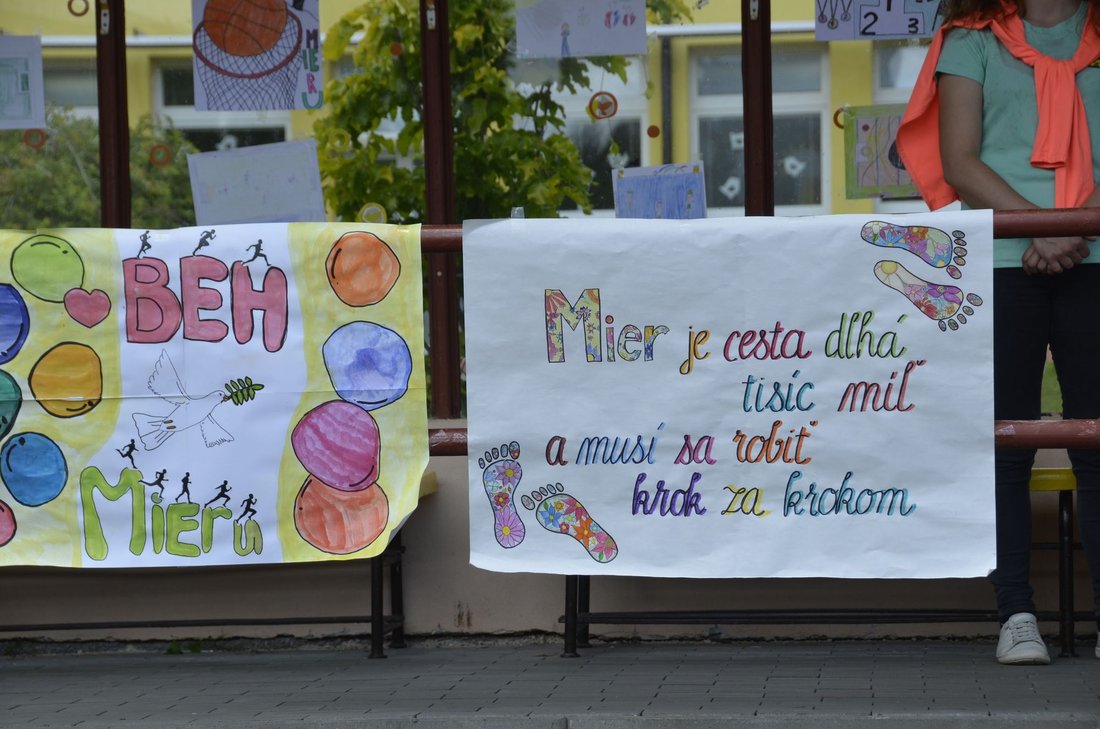 MIERU
1 2 3
BEH
MIERU
Mier je cesta dlhá
tisíc míľ
a musí sa robiť
krok za krokom